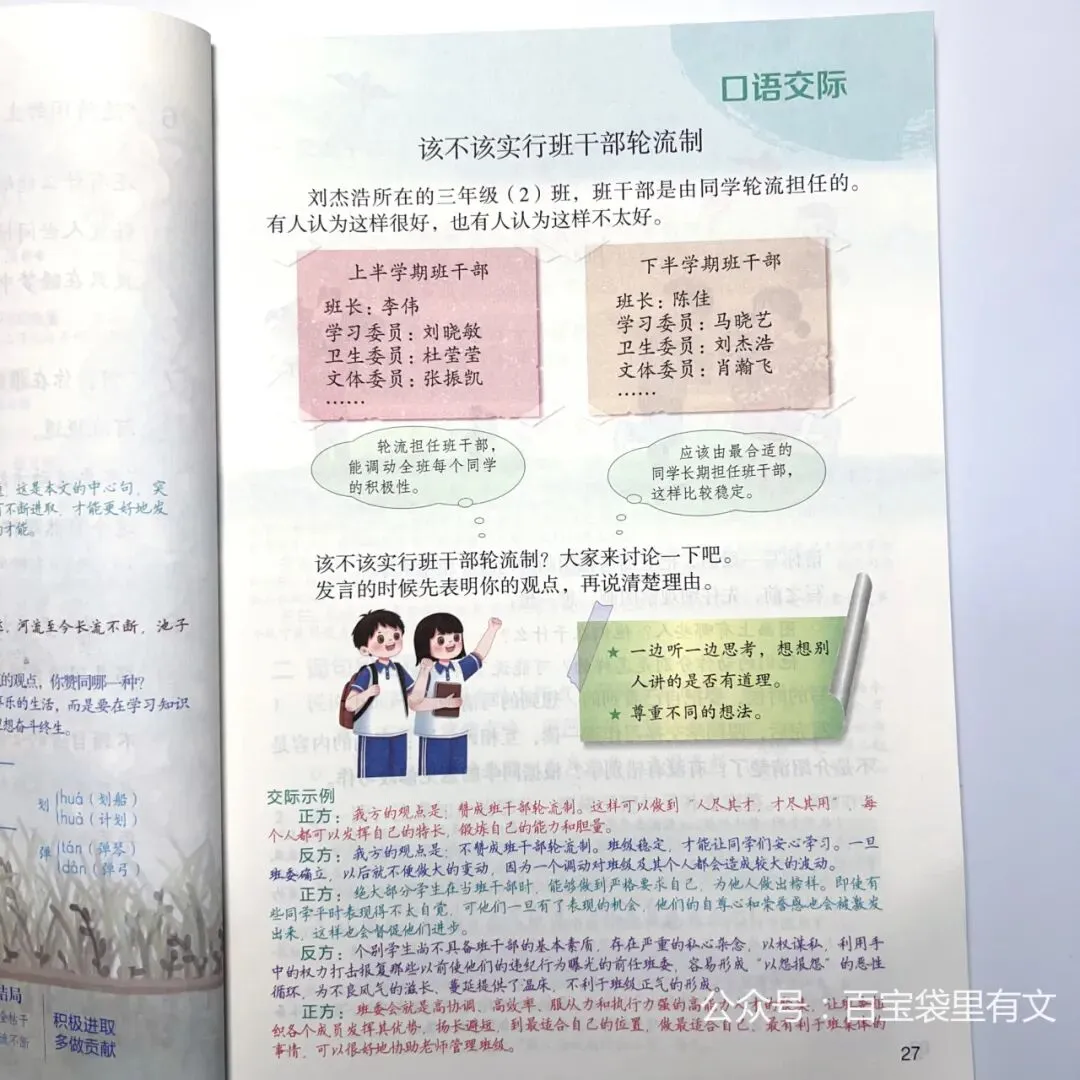 口语交际
该不该实行班干部轮流制
刘杰浩所在的三年级（2）班，班干部是由同学轮流担任的。
有人认为这样很好，也有人认为这样不太好。
上半学期班干部
班长：李伟
学习委员：刘晓敏
卫生委员：杜莹莹
文体委员：张振凯
……
下半学期班干部
班长：陈佳
学习委员：马晓艺
卫生委员：刘杰浩
文体委员：肖瀚飞
……
轮流担任班干部，
能调动全班每个同学
的积极性。
应该由最合适的
同学长期担任班干部，
这样比较稳定。
该不该实行班干部轮流制？大家来讨论一下吧。
发言的时候先表明你的观点，再说清楚理由。
★ 一边听一边思考，想想别
人讲的是否有道理。
★ 尊重不同的想法。
交际示例
正方：我方的观点是：赞成班干部轮流制。这样可以做到“人尽其才，才尽其用”，每
个人都可以发挥自己的特长，锻炼自己的能力和胆量。
反方：我方的观点是：不赞成班干部轮流制。班级稳定，才能让同学们安心学习。一旦
班委确立，以后就不便做大的变动，因为一个调动对班级及其个人都会造成较大的波动。
正方：绝大部分学生在当班干部时，能够做到严格要求自己，为他人做出榜样。即使有
些同学平时表现得不太自觉，可他们一旦有了表现的机会，他们的自尊心和荣誉感也会被激发
出来，这样也会督促他们进步。
反方：个别学生尚不具备班干部的基本素质，存在严重的私心杂念，以权谋私，利用手
中的权力打击报复那些以前使他们的违纪行为曝光的前任班委，容易形成“以怨报怨”的恶性
循环，为不良风气的滋长、蔓延提供了温床，不利于班级正气的形成。
正方：班委会就是高协调、高效率、服从力和执行力强的高
织各个成员发挥其优势，扬长避短，到最适合自己的位置，做最适合自己、最有利于班集体的
事情，可以很好地协助老师管理班级。
27
这是本文的中心句，突
不断进取，才能更好地发
才能。
河流至今长流不断，池子
的观点，你赞同哪一种？
乐的生活，而是要在学习知识
想奋斗终生。
划 huá（划船）
huà（计划）
弹 tán（弹琴）
dàn（弹弓）
结局
积极进取
多做贡献
公众号：百宝袋里有文